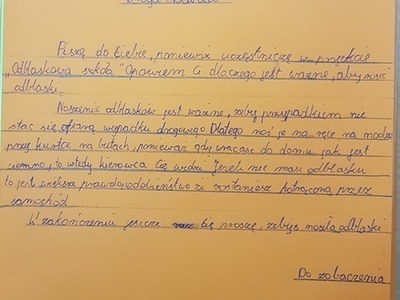 Piszę do Ciebie, ponieważ uczęstniczę w projekcie
„Odblaskowa szkoła" Opowiem Ci dlaczego jest ważne, aby nosić
odblaski.
Noszenie odblasków jest ważne, żeby przypadkiem nie
stać się ofiarą wypadku drogowego. Dlatego noś je na ręce na nodze
przy kurtce na butach, ponieważ gdy wracasz do domu jak jest
ciemno, to wtedy kierowca Cię widzi. Jeżeli nie masz odblasku
to jest większe prawdopodobieństwo że zostaniesz potrącona przez
samochód
W zakończeniu jeszcze Cię proszę, żebyś nosiła odblaski
Do zobaczenia